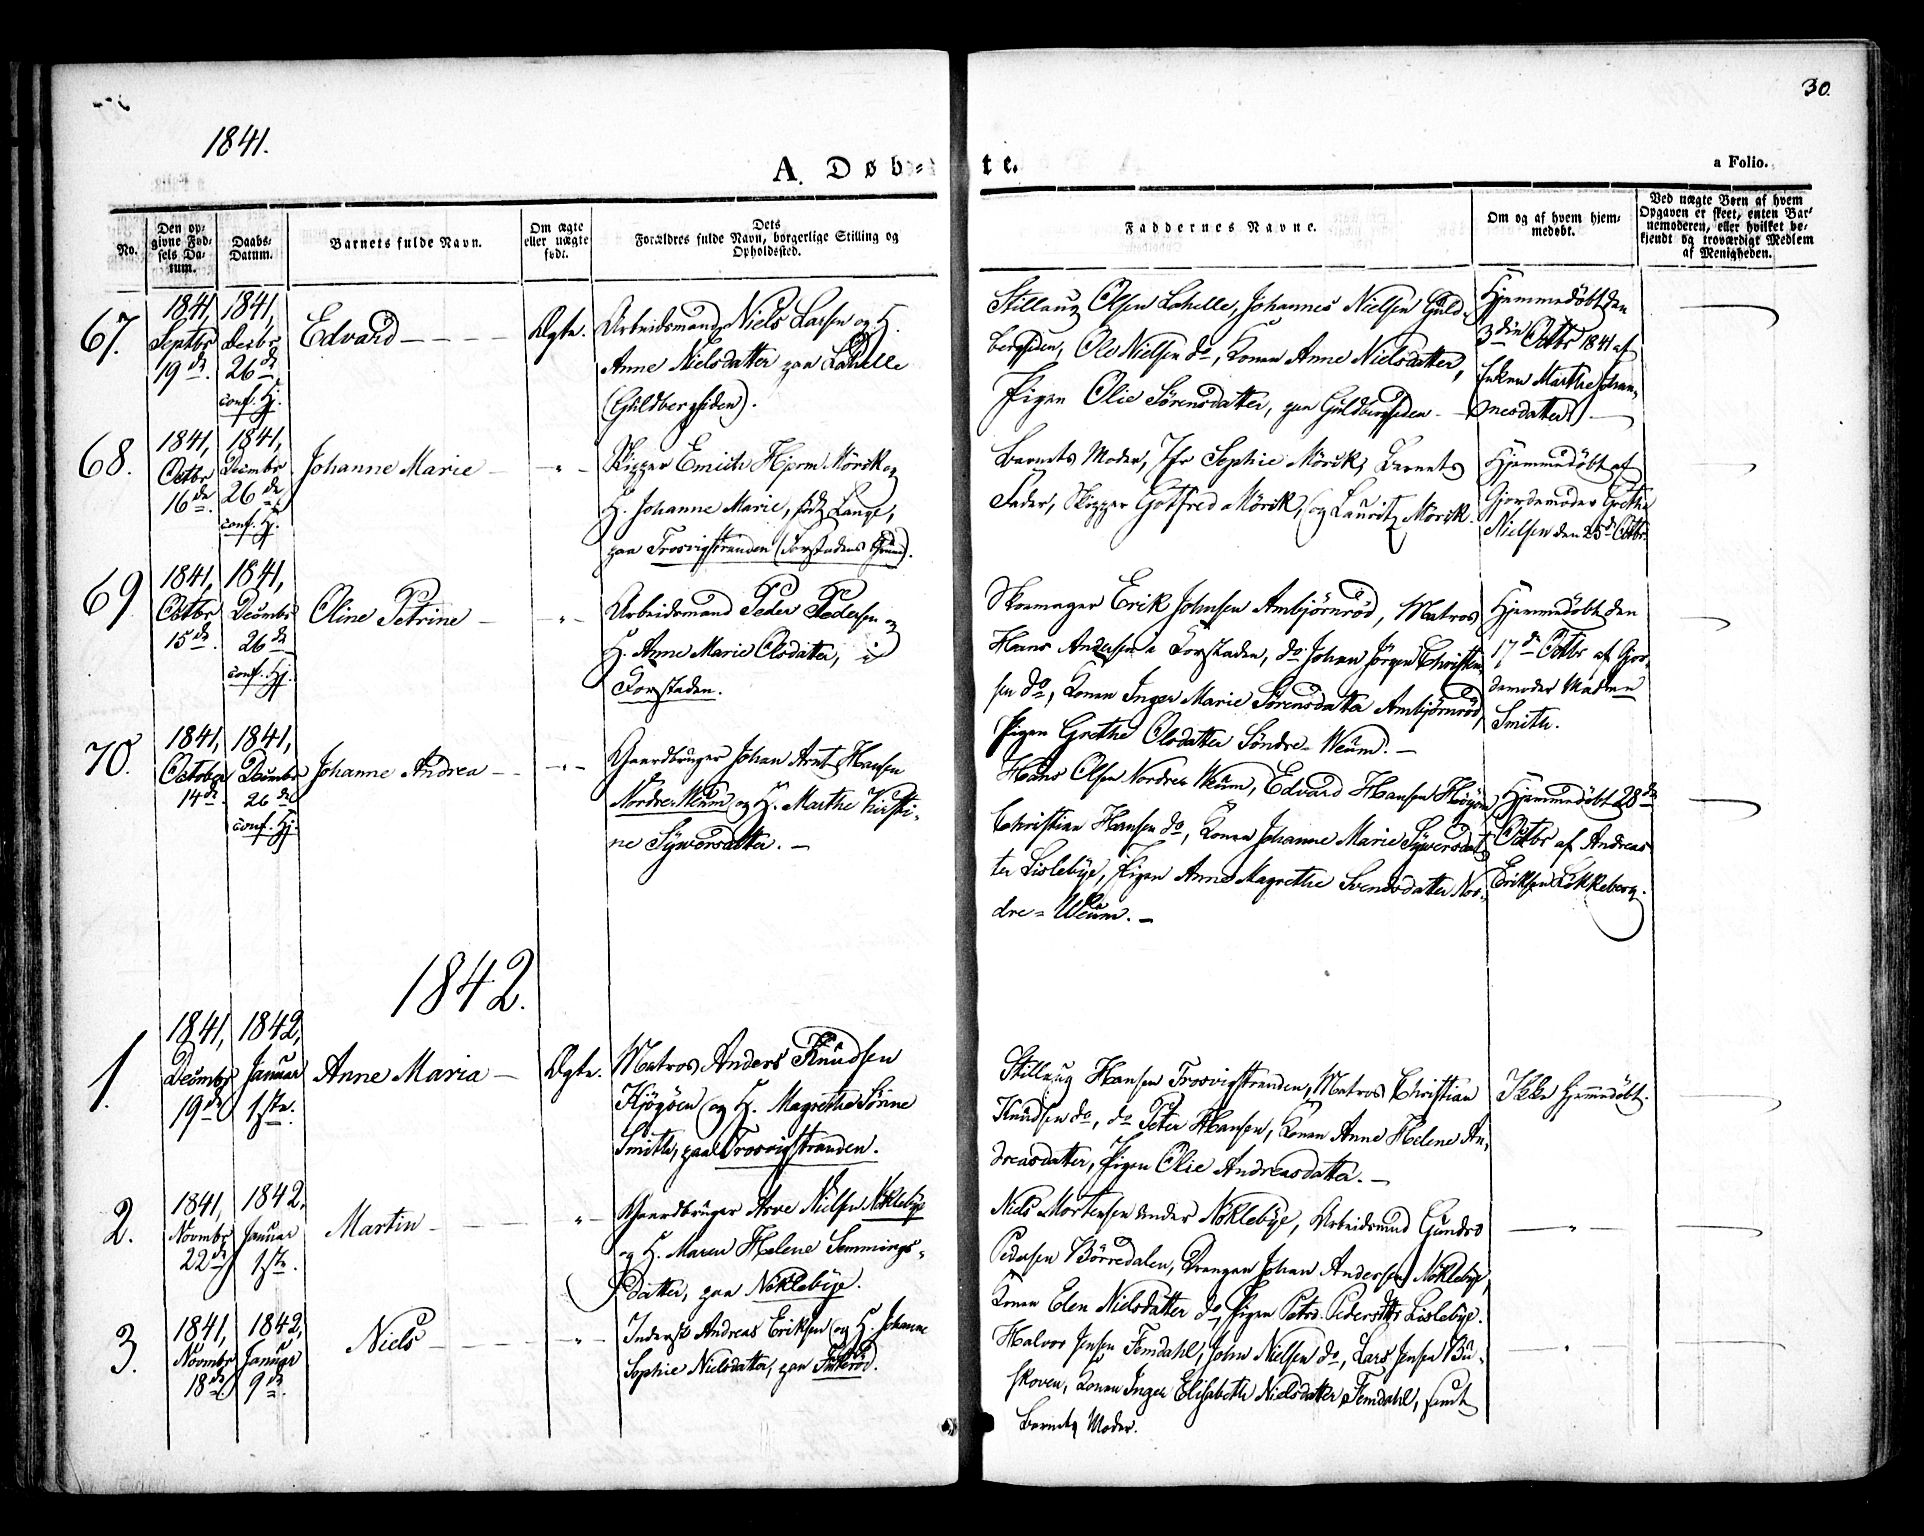 30.
1841.
A. Døbte.
a Folio.
No.
Den opgivne Fødsels Datum.
Daabs-Datum.
Barnets fulde Navn.
Om ægte eller uægte født.
Dets Forældres fulde Navn, borgerlige Stilling og Opholdssted.
Faddernes Navne.
Om og af hvem hjemmedøbt.
Ved uægte Børn af hvem Opgaven er skeet, enten Barnemoderen, eller hvilket bekjendt og troværdigt Medlem af Menigheden.
67.
1841, Septbr 19de.
1841, Decbr 26de conf. Hj.
Edvard
Ægte.
Arbeidsmand Niels Larsen og H.
Anne Nielsdatter paa Lahelle
(Guldbergsiden).
Stillaug Olsen Lahelle, Johannes Nielsen Guld-
bergsiden, Ole Nielsen do, Konen Anne Nielsdatter,
Pigen Olie Sørensdatter, paa Guldbergsiden
Hjemmedøbt den
3die Octbr 1841 af
Enken Marthe Johan-
nesdatter.
68.
1841, Octbr 16de.
1841, Decembr 26de conf. Hj.
Johanne Marie
"
Skipper Emich Hjerm. Mörck og
H. Johanne Marie, født Lange,
paa Trosvigstranden (Forstadens Grund).
Barnets Moder, Jfr Sophie Mörck, Barnets
Fader, Skipper Gotfred Mörck, og Lauritz Mörck.
Hjemmedøbt af
Gjordemoder Grethe
Nielsen den 25de Octbr
69
1841, Octbr 15de.
1841, Decembr 26de conf. Hj.
Oline Petrine
"
Arbeidsmand Peder Pedersen og
H. Anne Marie Olsdatter, i
Forstaden.
Skomager Erik Johnsen Ambjörnröd, Matros
Hans Andersen i Forstaden, do Johan Jörgen Christen-
sen do, Konen Inger Marie Sörensdatter Ambjörnröd,
Pigen Grethe Olsdatter Söndre-Weüm.
Hjemmedøbt den
17de Octbr af Gjor-
demoder Madme
Smith.
70.
1841, October 14de
1841, Decembr 26de conf. Hj.
Johanne Andrea
"
Gaardbruger Johan Arnt Hansen
Nordre Weüm og H. Marthe Kirsti-
ne Syversdatter.
Hans Olsen Nordre Weüm, Edvard Hansen
Christian Hansen do, Konen Johanne Marie Syversdat-
ter Lislebye, Pigen Anne Magrethe Svendsdatter Nor-
dre-Weüm.
Hjemmedøbt 28de
Octbr af Andreas
Eriksen Lökkeberg.
1842.
1.
1841, Decembr 19de
1842, Januar 1ste.
Anne Maria
Ægte.
Matros Anders Knudsen
Kjögöen og H. Magrethe Sörine
Smith, paa Trosvigstranden.
Stillaug Hansen Trosvigstranden, Matros Christian
Knudsen do, do Peter Hansen, Konen Anne Helene An-
dreasdatter, Pigen Olie Andreasdatter.
Ikke hjemmedøbt.
2.
1841, Novmbr 22de
1842, Januar 1ste.
Martin
"
Gaardbruger Arve Nielsen Noklebye
og H. Maren Helene Semmings-
datter, paa Noklebye.
Niels Mortensen Noklebye, Arbeidsmand Gunder
Pedersen Börredalen, Drengen Johan Andersen Noklebye,
Konen Elen Nielsdatter do, Pigen Petro. Pedersdtr Lislebye.
"
3.
1841, Novmbr 18de
1842, Januar 9de.
Niels
"
Inderst Andreas Eriksen og H. Johanne
Sophie Nielsdatter, paa
Halvor Jensen Femdahl, John Nielsen do, Lars Jensen Bu-
skoven, Konen Inger Elisabeth Nielsdatter Femdahl, samt
Barnets Moder.
"